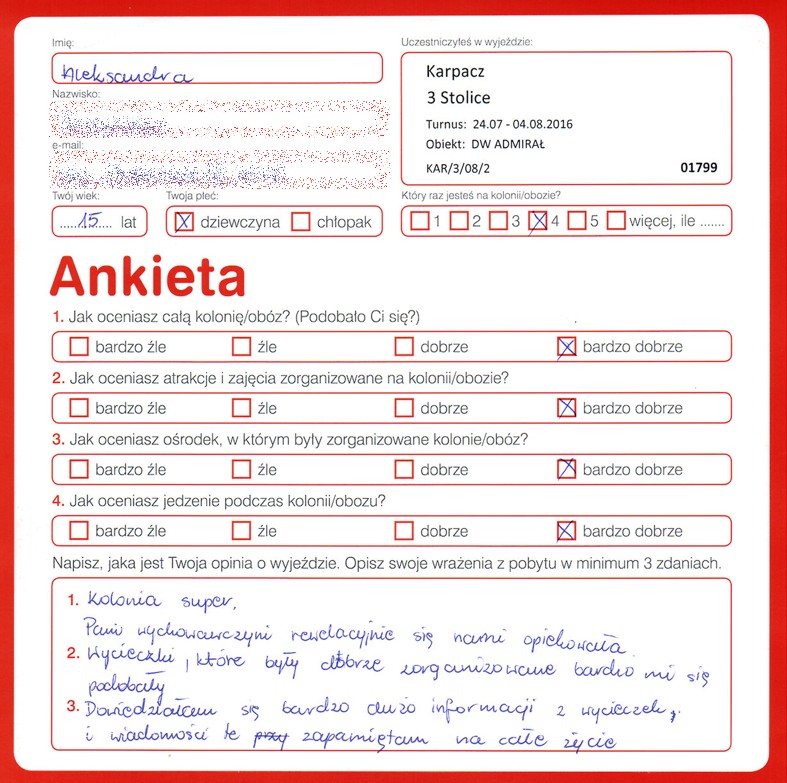 Imię:
Aleksandra
Nazwisko:
e-mail:
Uczestniczyłeś w wyjeździe:
Karpacz
3 Stolice
Turnus: 24.07 - 04.08.2016
Obiekt: DW ADMIRAŁ
KAR/3/08/2 01799
Twój wiek:
......15..... lat
Twoja płeć:
dziewczyna chłopak
Który raz jesteś na kolonii/obozie?
1 2 3 4 5 więcej, ile .......
Ankieta
1. Jak oceniasz całą kolonię/obóz? (Podobało Ci się?)
bardzo źle źle dobrze bardzo dobrze
2. Jak oceniasz atrakcje i zajęcia zorganizowane na kolonii/obozie?
bardzo źle źle dobrze bardzo dobrze
3. Jak oceniasz ośrodek, w którym były zorganizowane kolonie/obóz?
bardzo źle źle dobrze bardzo dobrze
4. Jak oceniasz jedzenie podczas kolonii/obozu?
bardzo źle źle dobrze bardzo dobrze
Napisz, jaka jest Twoja opinia o wyjeździe. Opisz swoje wrażenia z pobytu w minimum 3 zdaniach.
1. Kolonia super.
Pani wychowawczyni rewelacyjnie się nami opiekowała.
2. Wycieczki, które były dobrze zorganizowane bardzo mi się
podobały
3. Dowiedziałam się bardzo dużo informacji z wycieczek,
i wiadomości te przy zapamiętam na całe życie